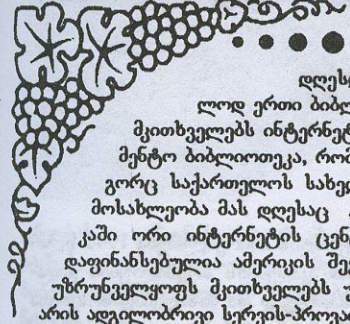 დღესა
ლოდ ერთი ბიბლ
მკითხველებს ინტერნეტ
მენტო ბიბლიოთეკა, რომ
გორც საქართელოს სახელ
მოსახლეობა მას დღესაც
კაში ორი ინტერნეტის ცენ
დაფინანსებულია ამერიკის შეე
უზრუნველყოფს მკითხველებს უ
არის ადგილობრივი სერვის-პროვაი